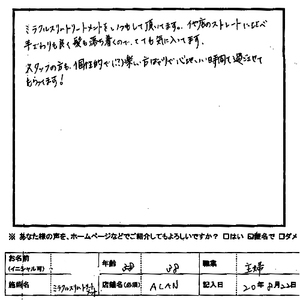 ミラクルストリートメントをいつもして頂いてます。他店のストレートにくらべ
手ざわりも良く髪も落ち着くので、とても気に入ってます。
スタッフの方も、個性的で(?)楽しい方ばかりで心地いい時間を過ごせて
もらってます!
※ あなた様の声を、ホームページなどでご紹介してもよろしいですか? □はい ☑匿名で □ダメ
お名前
(イニシャル可)
年齢
職業 主婦
施術名
店舗名(必須) ALAN
記入日 20年8月22日